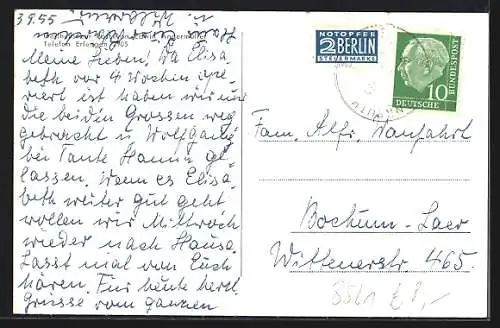 3.9.55
Telefon Erlangen
Meine Lieben! Da Elisa-
beth vor 4 Wochen ope-
riert ist haben wir nur
die beiden Grossen weg
gebracht u Wolfgang
bei Tante Hanna ge-
lassen. Wenn es Elisa-
beth weiter gut geht
wollen wir Mittwoch
wieder nach Hause.
Lasst mal von Euch
hören. Für heute herzl.
Grüsse vom ganzen
NOTOPFER
2 BERLIN
STEUERMARKE
DEUTSCHE
BUNDESPOST
10
Fam. Alfr. Vanfahrt
Bochum-Laer
Wittenerstr 465.